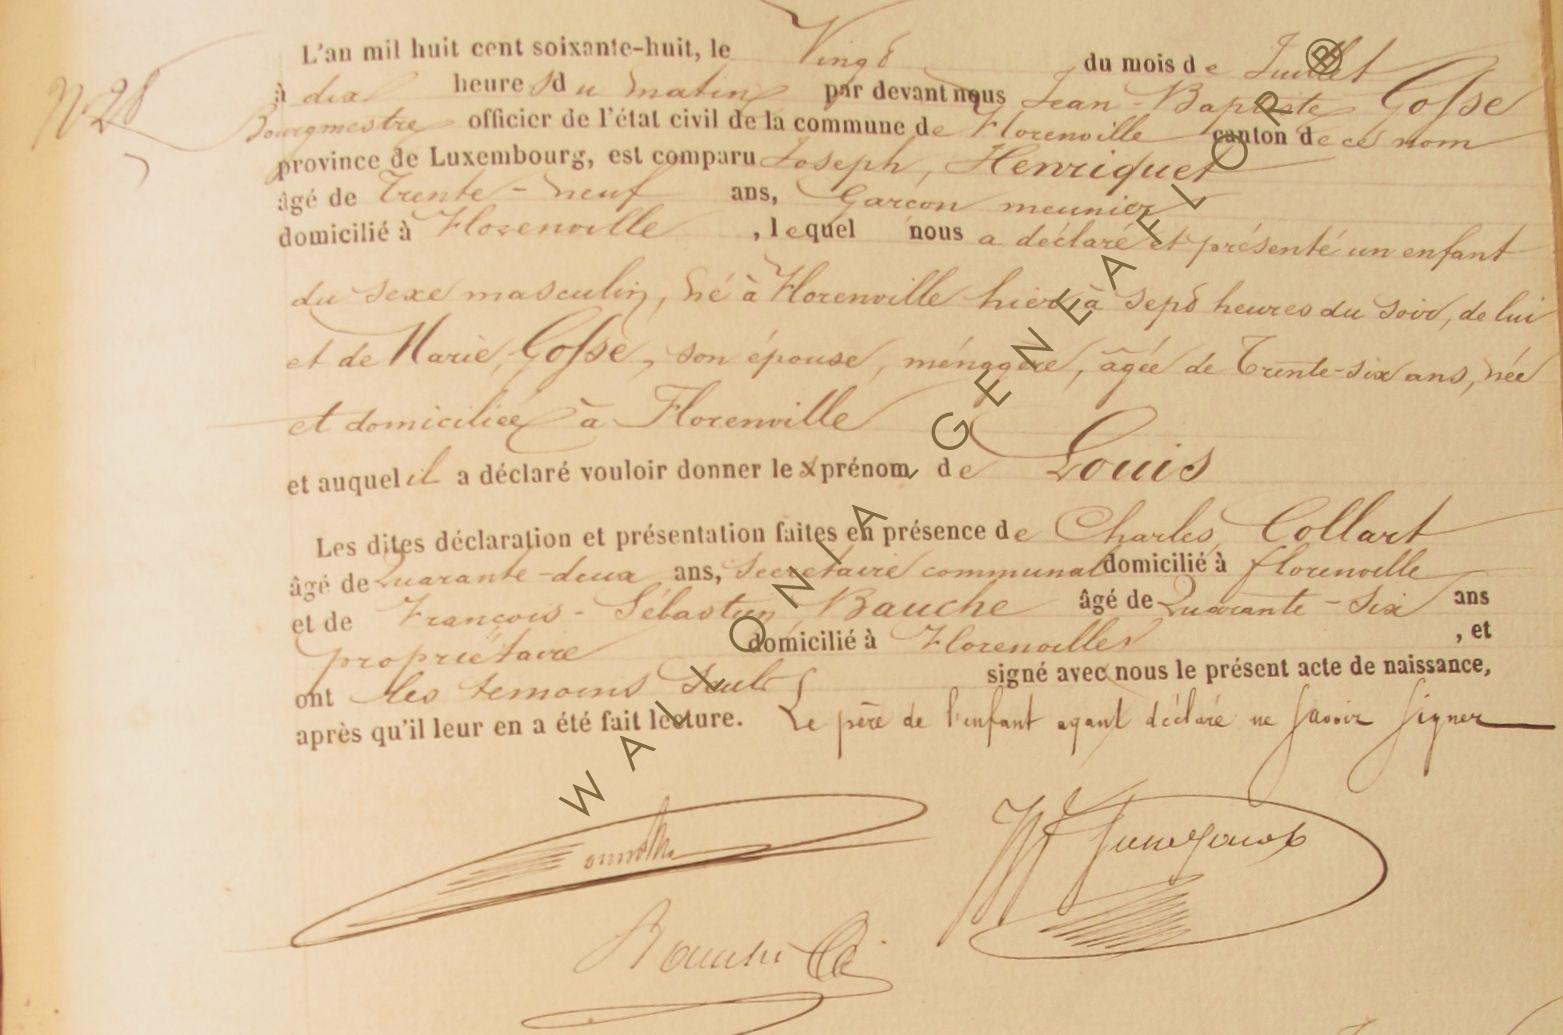 N° 28
L'an mil huit cent soixante-huit, le Vingt du mois de Juillet
à dix heures du matin par devant nous Jean-Baptiste Gosse
Bourgmestre officier de l'état civil de la commune de Florenville canton de ce nom
province de Luxembourg, est comparu Joseph, Henriquet
âgé de Trente-neuf ans, Garçon meunier
domicilié à Florenville, lequel nous a déclaré et présenté un enfant
du sexe masculin, né à Florenville hier à sept heures du soir, de lui
et de Marie, Gosse, son épouse, ménagère, âgée de Trente-six ans, née
et domiciliée à Florenville
et auquel il a déclaré vouloir donner le prénom de Louis
Les dites déclaration et présentation faites en présence de Charles, Collart
âgé de Quarante-deux ans, Secrétaire communal domicilié à florenville
et de François-Sébastien, Bauche âgé de Quarante-six ans
propriétaire domicilié à Florenville, et
ont les temoins seuls signé avec nous le présent acte de naissance,
après qu'il leur en a été fait lecture. Le père de l'enfant ayant déclaré ne savoir signer
WALLONIA GENEAFLOR B